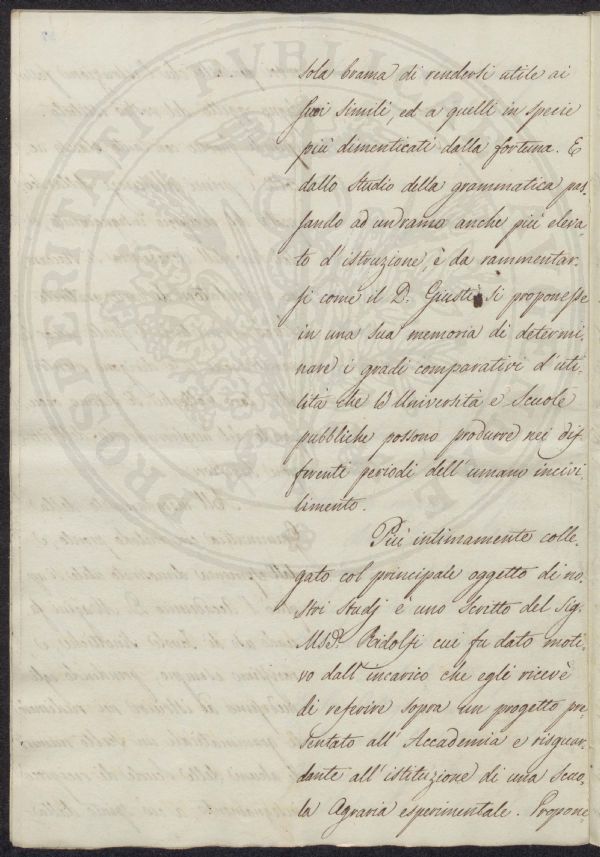 sola brama di rendersi utile ai
suoi simili, ed a quelli in specie
più dimenticati dalla fortuna. E
dallo studio della grammatica pas-
sando ad un ramo anche più eleva-
to d'istruzione, è da rammentar-
si come il D. Giusti si proponesse
in una sua memoria di determi-
nare i gradi comparativi d'uti-
lità che le Università e Scuole
pubbliche possono produrre nei dif-
ferenti periodi dell'umano incivi-
limento.
Più intimamente colle-
gato col principale oggetto di no-
stri studj è uno scritto del Sig.
Ridolfi cui fu dato moti-
vo dall'incarico che egli ricevè
di referire sopra un progetto pre-
sentato all'Accademia e risguar-
dante all'istituzione di una scuo-
la Agraria esperimentale. Propone-
PROSPERITATI PVBLICAE